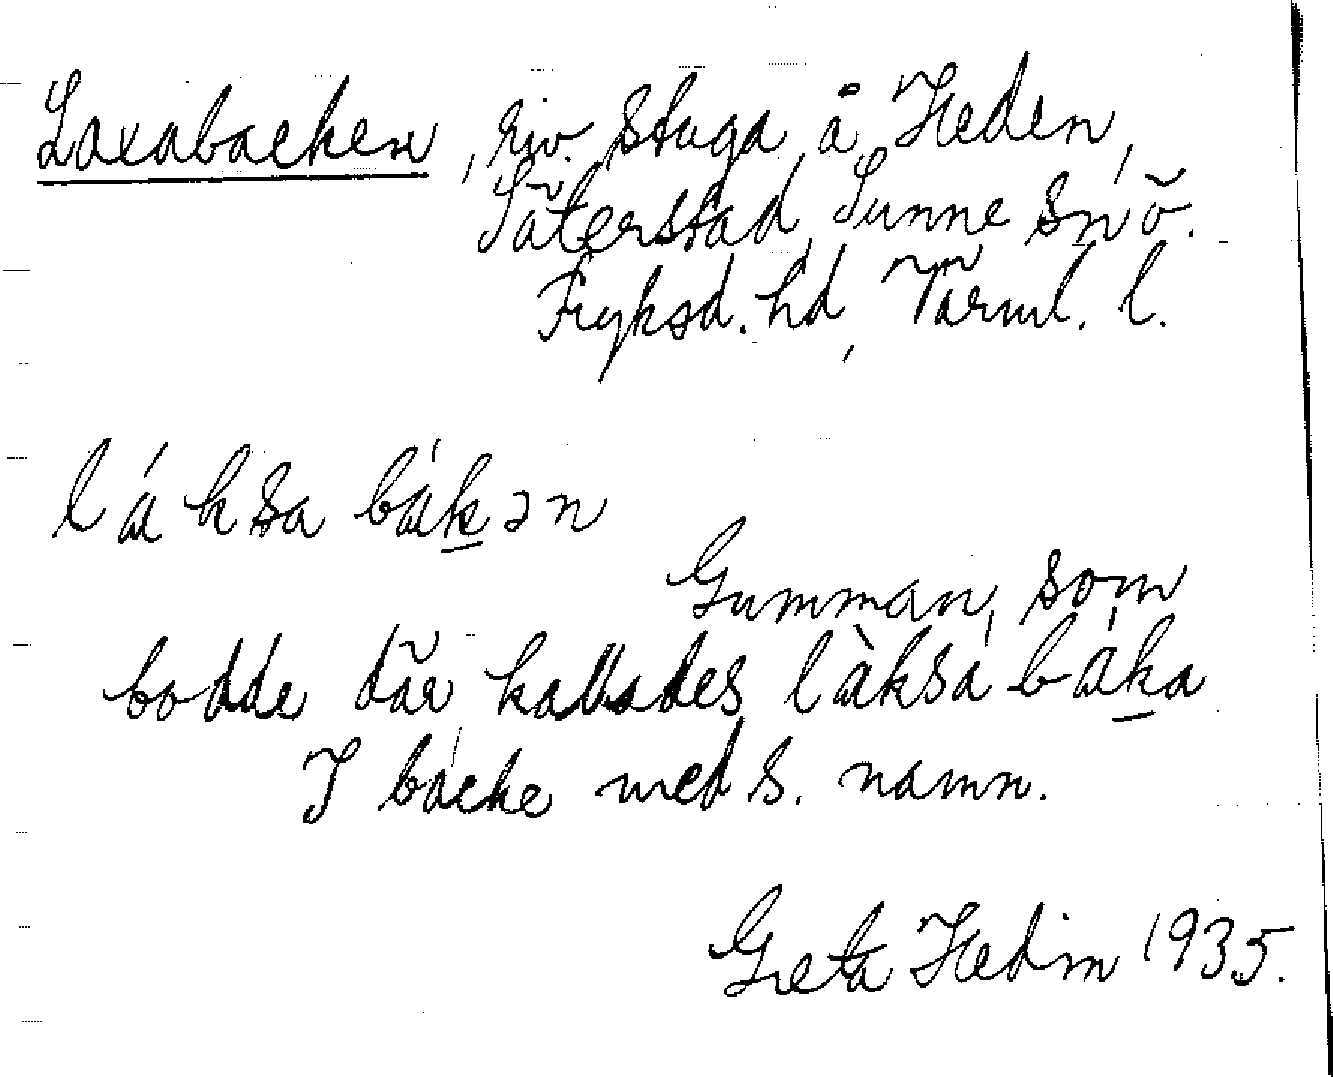 Laxabacken, riv. stuga å Heden,
Säterstad, Sunne sn ö.
Fryksd. hd, Värml. l.
láksa bák̲ən
Gumman, som
bodde där, kallades làksa bák̲a
I backe med s. namn.
Greta Hedin 1935.